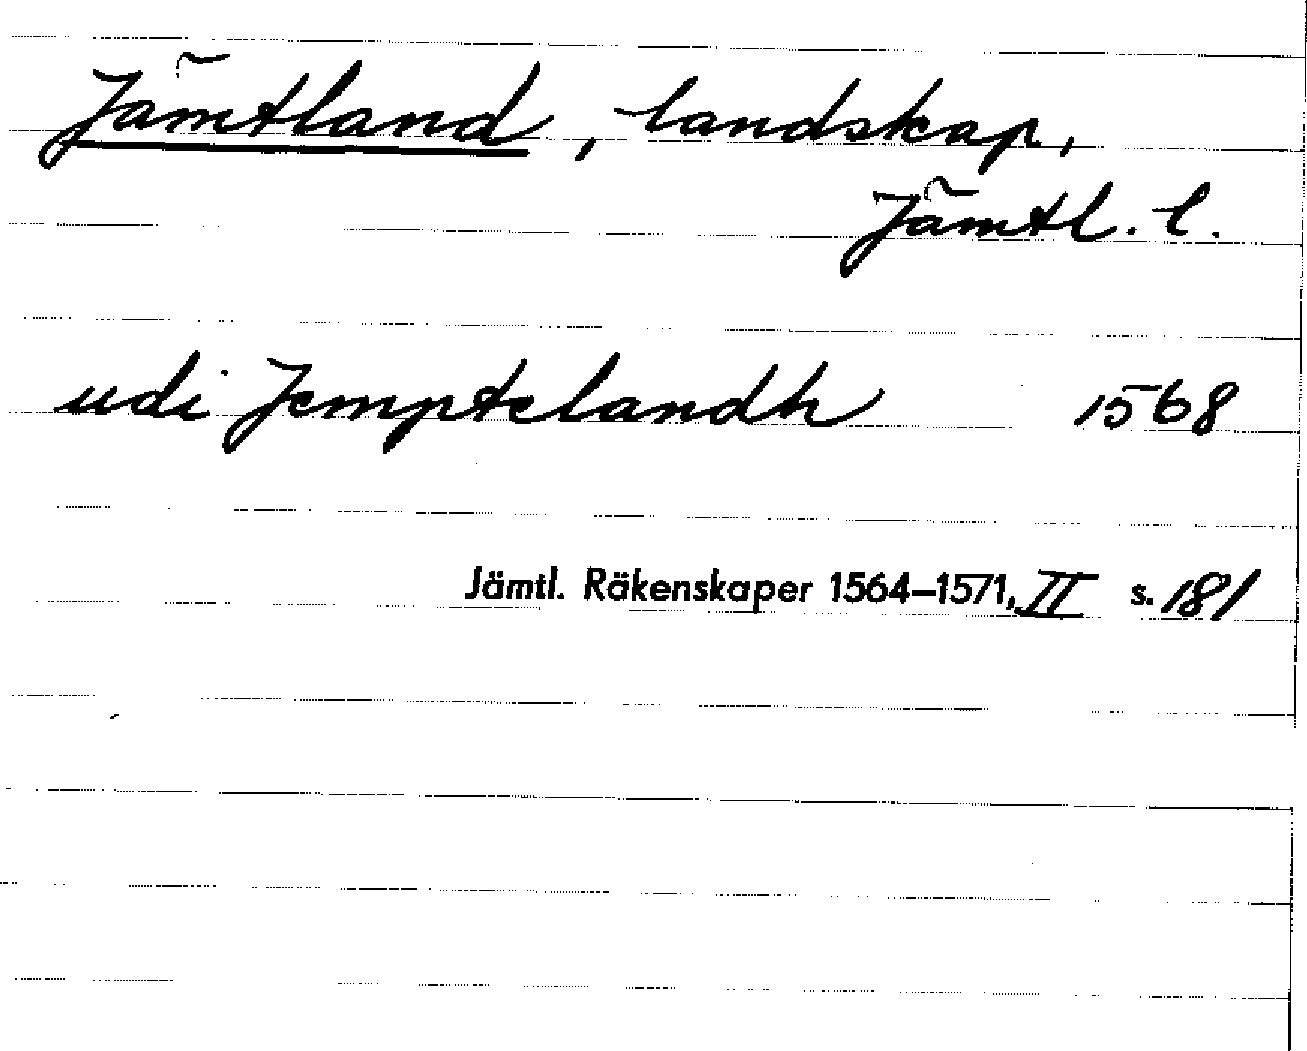 Jämtland, landskap,
Jämtl. l.
udi Jemptelandh 1568
Jämtl. Räkenskaper 1564–1571, II s. 181